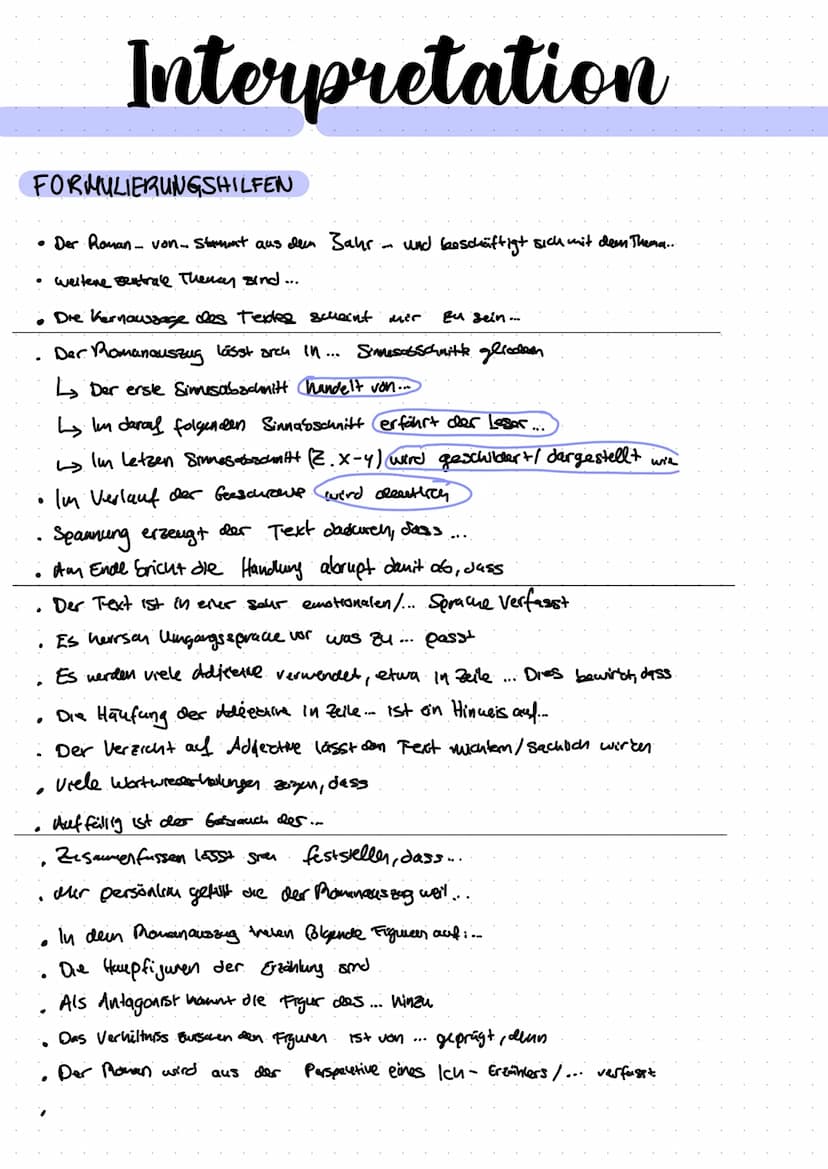 Interpretation
FORMULIERUNGSHILFEN
• Der Roman … von … stammt aus dem Jahr … und beschäftigt sich mit dem Thema..
• weitere zentrale Themen sind ...
• Die Kernaussage des Textes scheint mir zu sein ...
• Der Romanauszug lässt sich in ... Sinnesabschnitte gliedern
↳ Der erste Sinnesabschnitt handelt von...
↳ Im darauf folgenden Sinnabschnitt erfährt der Leser ...
↳ Im Letzen Sinnesabschnitt (Z. X-Y) wird geschildert / dargestellt wie
• Im Verlauf der Geschichte wird deutlich
• Spannung erzeugt der Text dadurch, dass ...
• Am Ende bricht die Handlung abrupt damit ab, dass
• Der Text ist in einer sehr emotionalen /... Sprache verfasst
• Es herrscht Umgangssprache vor was zu ... passt
• Es werden viele Adjektive verwendet, etwa in Zeile ... Dies bewirkt, dass
• Die Häufung der Adjektive in Zeile ... ist ein Hinweis auf...
• Der Verzicht auf Adjektive lässt den Text nüchtern / sachlich wirken
• Viele Wortwiederholungen zeigen, dass
• Auffällig ist der Gebrauch des ...
• Zusammenfassen lässt sich feststellen, dass ...
• Mir persönlich gefällt die der Romanauszug weil ...
• In dem Romanauszug treten folgende Figuren auf: ...
• Die Haupfiguren der Erzählung sind
• Als Antagonist kommt die Figur des ... hinzu
• Das Verhältniss zwischen den Figuren ist von ... geprägt, denn
• Der Roman wird aus der Perspektive eines Ich - Erzählers / ... verfasst